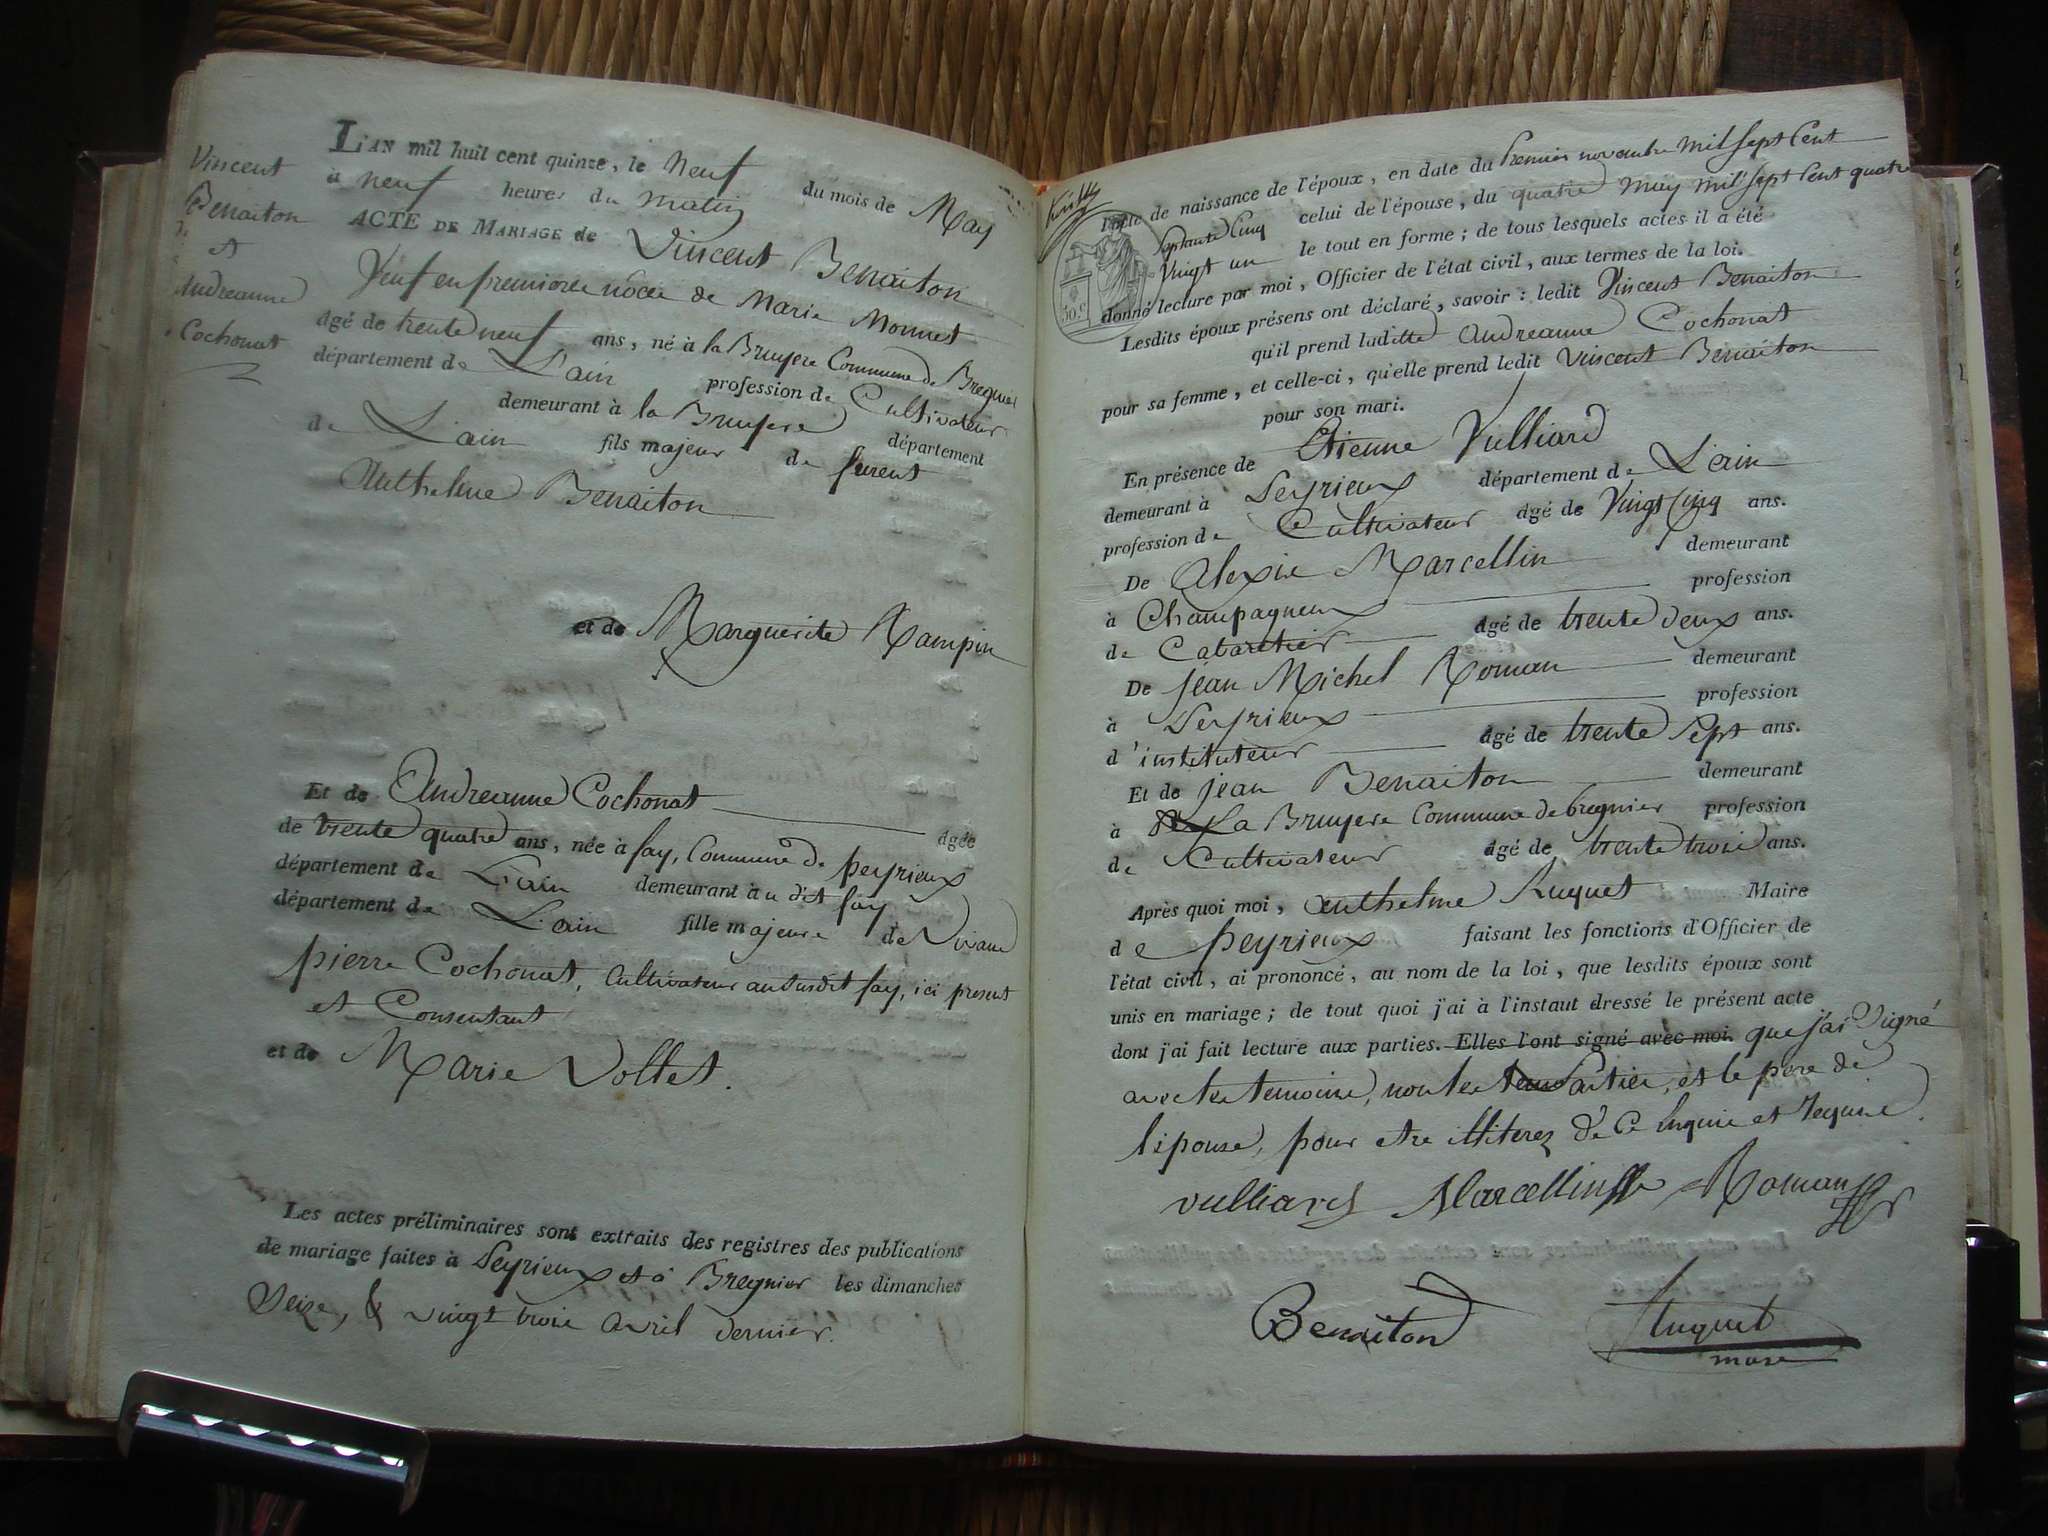 Vincent
Benaiton
et
Andreanne
Cochonat
L'AN mil huit cent quinze, le Neuf du mois de May
à neuf heures du matin
ACTE DE MARIAGE de Vincent Benaiton
Veuf en premiere noce de Marie Monnet
âgé de trente neuf ans, né à la Bruyere Commune de Bregnier
département de L'ain profession de Cultivateur
demeurant à la Bruyere département
de L'ain fils majeur de feu
Anthelme Benaiton
et de Marguerite Rampin
Et de Andreanne Cochonat âgée
de trente quatre ans, née à fay, Commune de peyrieux
département de L'ain demeurant au dit fay
département de L'ain fille majeure de Vivant
pierre Cochonat, Cultivateur au susdit fay, ici present
et Consentant
et de Marie Vollet.
Les actes préliminaires sont extraits des registres des publications
de mariage faites à Peyrieux et à Bregnier les dimanches
Seize, & vingt trois avril dernier.
l'acte de naissance de l'époux, en date du Premier novembre mil sept Cent
Septante Cinq celui de l'épouse, du quatre may mil sept Cent quatre
Vingt un le tout en forme; de tous lesquels actes il a été
donné lecture par moi, Officier de l'état civil, aux termes de la loi.
50.c
Lesdits époux présens ont déclaré, savoir: ledit Vincent Benaiton
qu'il prend laditte Andreanne Cochonat
pour sa femme, et celle-ci, qu'elle prend ledit Vincent Benaiton
pour son mari.
En présence de Etienne Vulliard
demeurant à Peyrieux département de L'ain
profession de Cultivateur âgé de Vingt Cinq ans.
De Alexie Marcellin demeurant
à Champagneux profession
de Cabaretier âgé de trente deux ans.
De jean Michel Roman demeurant
à Peyrieux profession
d'instituteur âgé de trente Sept ans.
Et de jean Benaiton demeurant
à La Bruyere Commune de bregnier profession
de Cultivateur âgé de trente trois ans.
Après quoi moi, anthelme Huguet Maire
de peyrieux faisant les fonctions d'Officier de
l'état civil, ai prononcé, au nom de la loi, que lesdits époux sont
unis en mariage; de tout quoi j'ai à l'instant dressé le présent acte
dont j'ai fait lecture aux parties. Elles l'ont signé avec moi. que j'ai Signé
avec les temoins, non les Parties, et le pere de
l'epouse, pour etre illiterez de Ce Enquis et Requis.
vulliard Marcellin Roman
Benaiton Huguet
maire